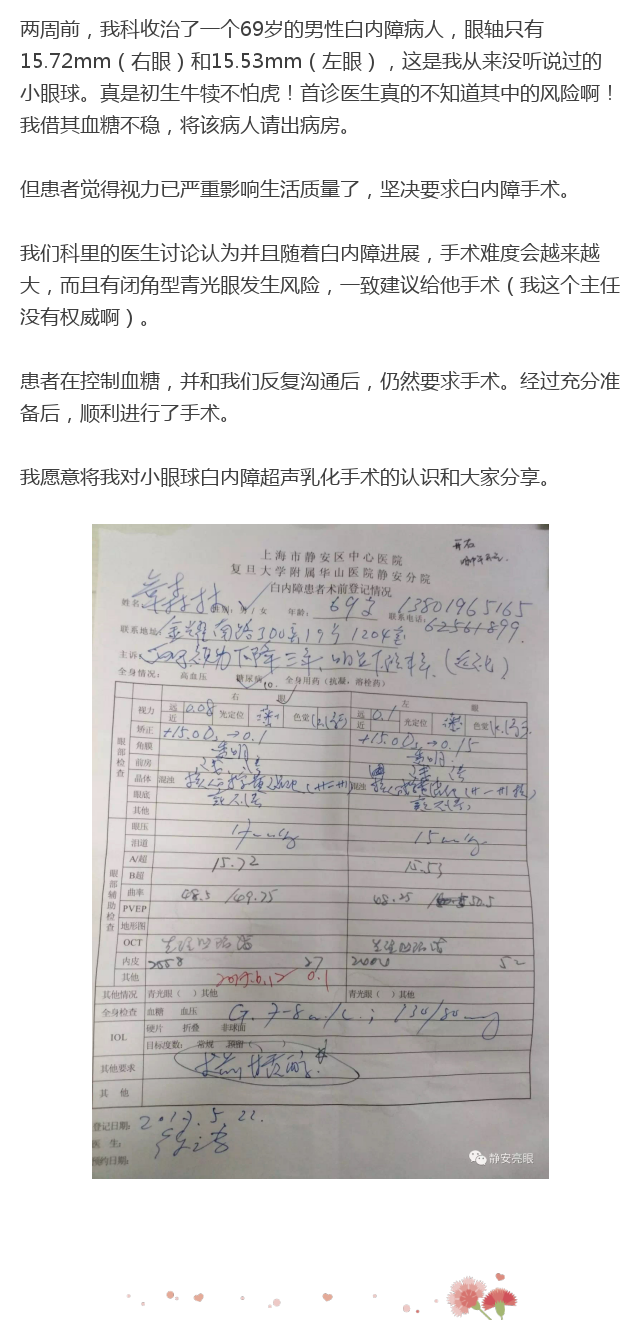 两周前，我科收治了一个69岁的男性白内障病人，眼轴只有
15.72mm（右眼）和15.53mm（左眼），这是我从来没听说过的
小眼球。真是初生牛犊不怕虎！首诊医生真的不知道其中的风险啊！
我借其血糖不稳，将该病人请出病房。
但患者觉得视力已严重影响生活质量了，坚决要求白内障手术。
我们科里的医生讨论认为并且随着白内障进展，手术难度会越来越
大，而且有闭角型青光眼发生风险，一致建议给他手术（我这个主任
没有权威啊）。
患者在控制血糖，并和我们反复沟通后，仍然要求手术。经过充分准
备后，顺利进行了手术。
我愿意将我对小眼球白内障超声乳化手术的认识和大家分享。
上海市静安区中心医院
复旦大学附属华山医院静安分院
白内障患者术前登记情况
姓名： 性别：男/女 年龄：69岁 联系电话：13801965165
62561899.
联系地址：金耀南路300弄19号1204室
主诉： 视力下降三年
全身情况： 高血压 糖尿病 10. 全身用药（抗凝，溶栓药）
右 眼 左 眼
眼部检查
视力 远 0.08 近 光定位 色觉 远 0.1 近 光定位 色觉
矫正 +15.0Ds→0.1 +15.0Ds→0.15
角膜 透明 透明
前房
晶体 混浊 混浊
眼底
其他
眼部辅助检查
眼压 17mmHg 15mmHg
泪道
A/超 15.72 15.53
B超
曲率 48.5 /49.75 48.25 50.5
PVEP
地形图
OCT
内皮 2558 27 52
其他 0.1
其他情况 青光眼（ ）其他 青光眼（ ）其他
全身检查 血糖 血压 130/80mmHg
IOL 硬片 折叠 非球面
目标度数： 常规 预留（ ）
其他要求 术前甘露醇
其 他
登记日期：2017.5.22.
医 生：
预约日期：
静安亮眼